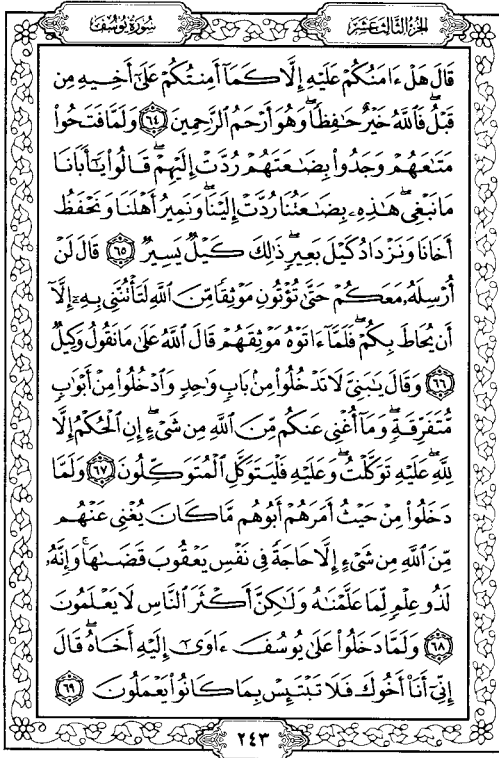 الجزء الثالث عشر
سورة يوسف
قَالَ هَلْ ءَامَنُكُمْ عَلَيْهِ إِلَّا كَمَآ أَمِنتُكُمْ عَلَىٰٓ أَخِيهِ مِن
قَبْلُ ۖ فَٱللَّهُ خَيْرٌ حَٰفِظًا ۖ وَهُوَ أَرْحَمُ ٱلرَّٰحِمِينَ ٦٤ وَلَمَّا فَتَحُوا۟
مَتَٰعَهُمْ وَجَدُوا۟ بِضَٰعَتَهُمْ رُدَّتْ إِلَيْهِمْ ۖ قَالُوا۟ يَٰٓأَبَانَا
مَا نَبْغِى ۖ هَٰذِهِۦ بِضَٰعَتُنَا رُدَّتْ إِلَيْنَا ۖ وَنَمِيرُ أَهْلَنَا وَنَحْفَظُ
أَخَانَا وَنَزْدَادُ كَيْلَ بَعِيرٍ ۖ ذَٰلِكَ كَيْلٌ يَسِيرٌ ٦٥ قَالَ لَنْ
أُرْسِلَهُۥ مَعَكُمْ حَتَّىٰ تُؤْتُونِ مَوْثِقًا مِّنَ ٱللَّهِ لَتَأْتُنَّنِى بِهِۦٓ إِلَّآ
أَن يُحَاطَ بِكُمْ ۖ فَلَمَّآ ءَاتَوْهُ مَوْثِقَهُمْ قَالَ ٱللَّهُ عَلَىٰ مَا نَقُولُ وَكِيلٌ
٦٦ وَقَالَ يَٰبَنِىَّ لَا تَدْخُلُوا۟ مِنۢ بَابٍ وَٰحِدٍ وَٱدْخُلُوا۟ مِنْ أَبْوَٰبٍ
مُّتَفَرِّقَةٍ ۖ وَمَآ أُغْنِى عَنكُم مِّنَ ٱللَّهِ مِن شَىْءٍ ۖ إِنِ ٱلْحُكْمُ إِلَّا
لِلَّهِ ۖ عَلَيْهِ تَوَكَّلْتُ ۖ وَعَلَيْهِ فَلْيَتَوَكَّلِ ٱلْمُتَوَكِّلُونَ ٦٧ وَلَمَّا
دَخَلُوا۟ مِنْ حَيْثُ أَمَرَهُمْ أَبُوهُم مَّا كَانَ يُغْنِى عَنْهُم
مِّنَ ٱللَّهِ مِن شَىْءٍ إِلَّا حَاجَةً فِى نَفْسِ يَعْقُوبَ قَضَىٰهَا ۚ وَإِنَّهُۥ
لَذُو عِلْمٍ لِّمَا عَلَّمْنَٰهُ وَلَٰكِنَّ أَكْثَرَ ٱلنَّاسِ لَا يَعْلَمُونَ
٦٨ وَلَمَّا دَخَلُوا۟ عَلَىٰ يُوسُفَ ءَاوَىٰٓ إِلَيْهِ أَخَاهُ ۖ قَالَ
إِنِّىٓ أَنَا۠ أَخُوكَ فَلَا تَبْتَئِسْ بِمَا كَانُوا۟ يَعْمَلُونَ ٦٩
٢٤٣